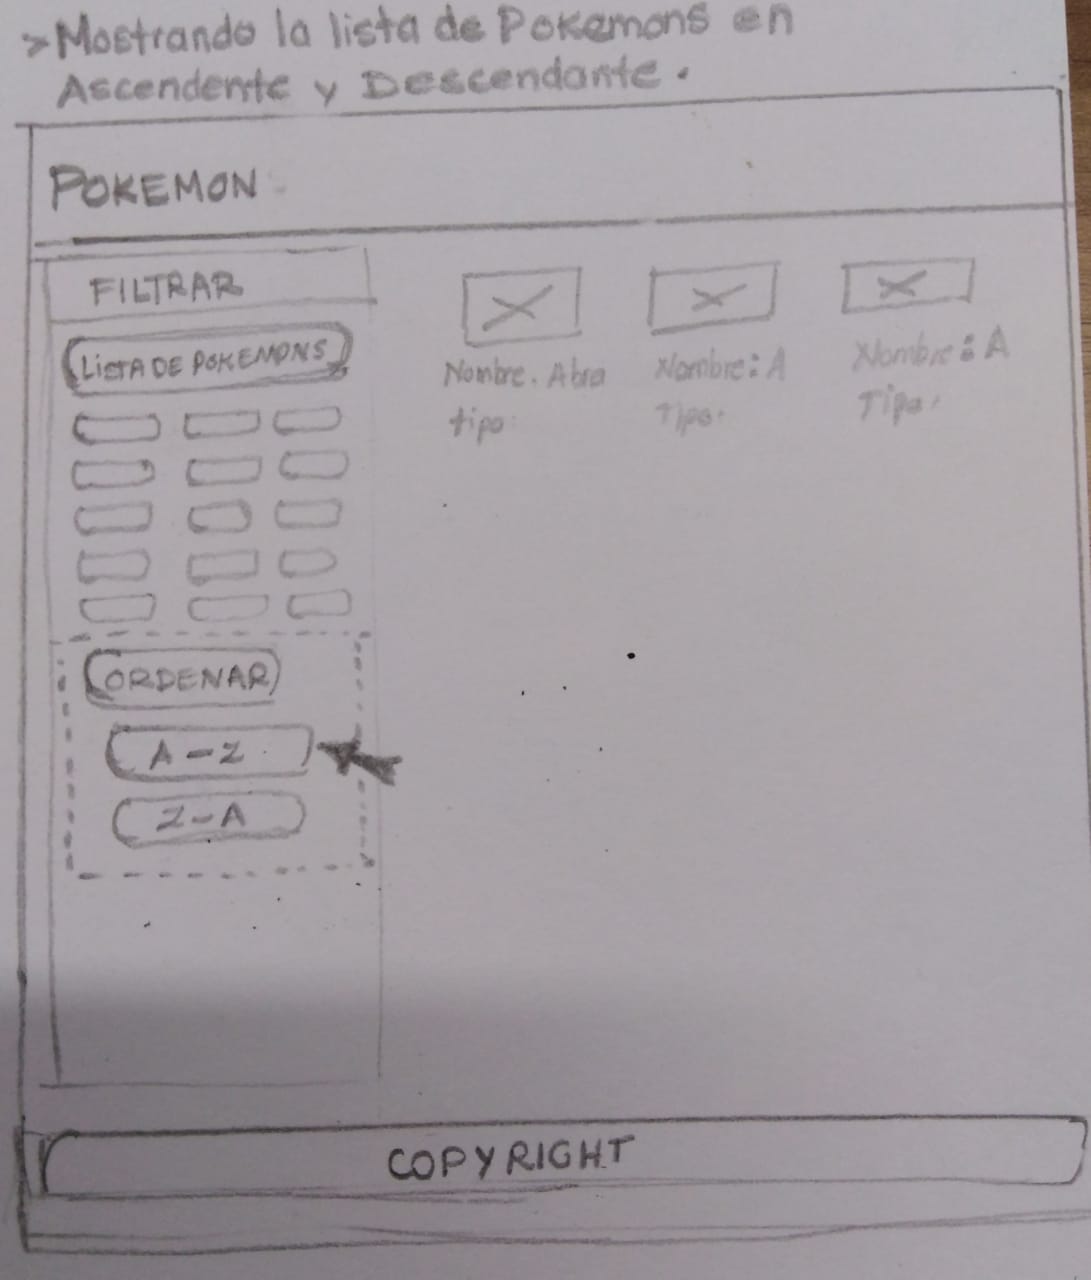 >Mostrando la lista de Pokemons en
Ascendente y Descendante.
POKEMON
FILTRAR
LISTA DE POKEMONS
Nombre. Abra
tipo.
Nombre: A
Tipo.
Nombre: A
Tipo.
ORDENAR
A-Z
Z-A
COPYRIGHT